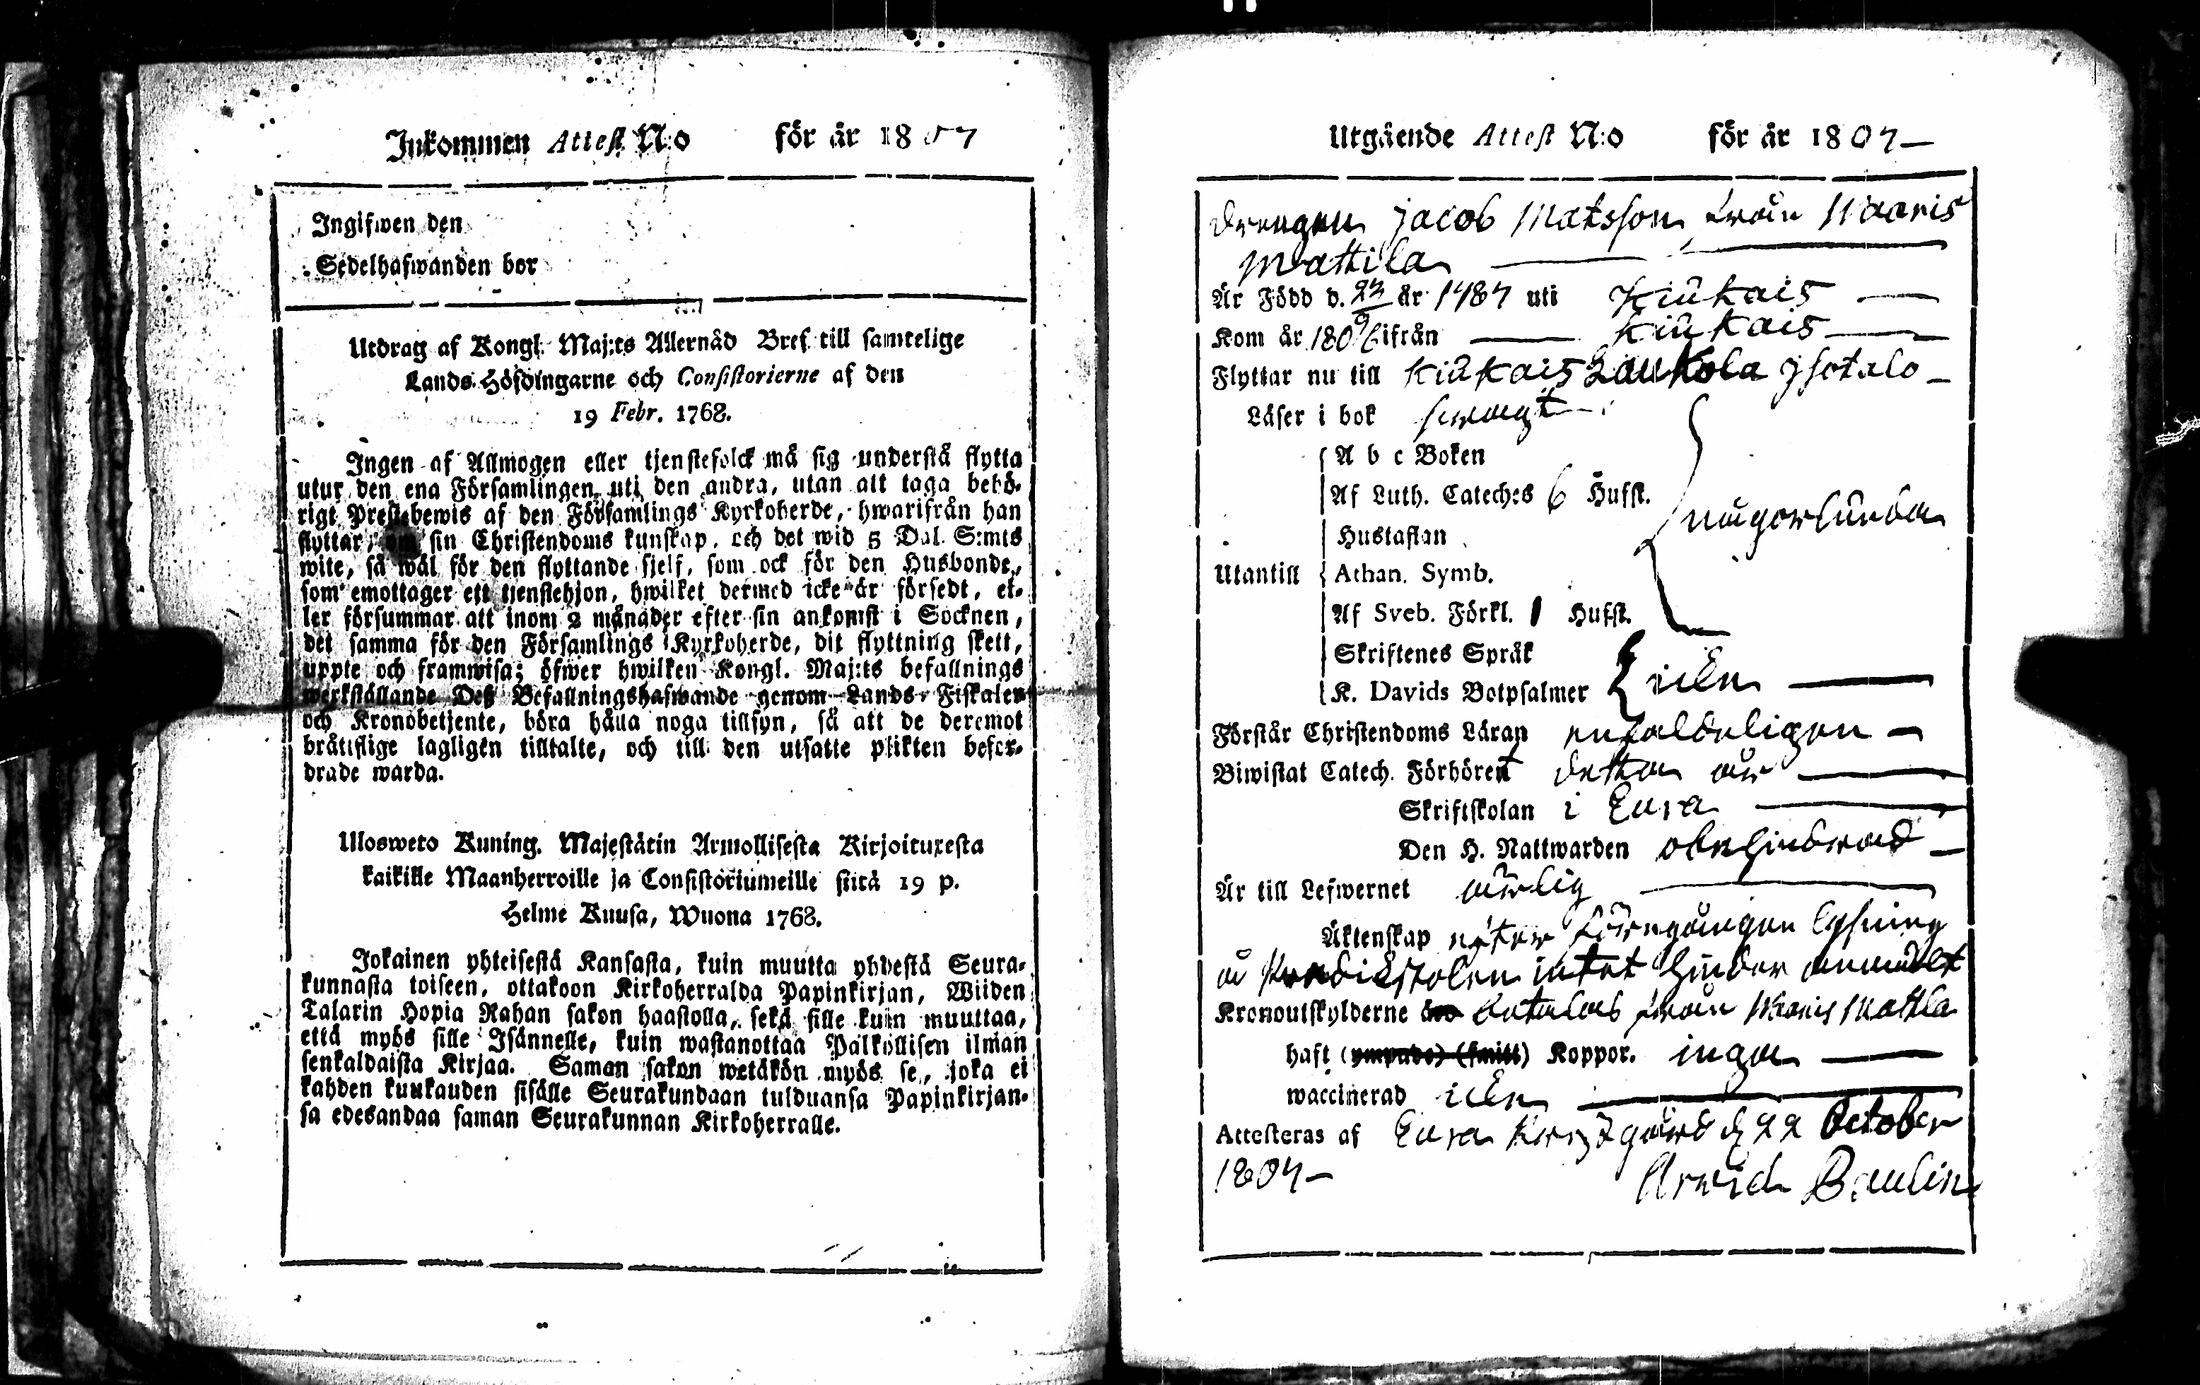 Inkommen Attest N:o för år 1807
Ingifwen den
Sedelhafwanden bor
Utdrag af Kongl. Maj:ts Allernåd Bref till samtelige
Lands Höfdingarne och Consistorierne af den
19 Febr. 1768.
Ingen af Allmogen eller tjenstefolck må sig understå flytta
utur den ena Församlingen uti den andra, utan att taga behö-
rigt Prestebewis af den Församlings Kyrkoherde, hwarifrån han
flyttar, om sin Christendoms kunskap, och det wid 5 Dal. S:mts
wite, så wäl för den flyttande sjelf, som ock för den Husbonde,
som emottager ett tjenstehjon, hwilket dermed icke är försedt, el-
ler försummar att inom 2 månader efter sin ankomst i Socknen,
det samma för den Församlings Kyrkoherde, dit flyttning skett,
uppte och framwisa; öfwer hwilken Kongl. Maj:ts befallnings
werkställande Deß Befallningshafwande genom Lands Fiskaler
och Kronobetjente, böra hålla noga tillsyn, så att de deremot
bråttslige lagligen tilltalte, och till den utsatte plikten befor-
drade warda.
Ulosweto Kuning. Majestätin Armollisesta Kirjoituxesta
kaikille Maanherroille ja Consistoriumeille siitä 19 p.
Helme Kuusa, Wuona 1768.
Jokainen yhteisestä Kansasta, kuin muutta yhdestä Seura-
kunnasta toiseen, ottakoon Kirkoherralda Papinkirjan, Wiiden
Talarin Hopia Rahan sakon haastolla, sekä sille kuin muuttaa,
että myös sille Isännelle, kuin wastanottaa Palkollisen ilman
senkaldaista Kirjaa. Saman sakon wetäkön myös se, joka ei
kahden kuukauden sisälle Seurakundaan tulduansa Papinkirjan-
sa edesandaa saman Seurakunnan Kirkoherralle.
Utgående Attest N:o för år 1807
Drengen Jacob Matsson från Naaris
Mattila
Är Född d. 27/9 år 1787 uti Kiukais
Kom år 1806 ifrån Kiukais
Flyttar nu till Kiukais Laukola Isotalo
Läser i bok swagt
A b c Boken
Af Luth. Cateches 6 Hufst.
Hustaflan
någorlunda
Utantill Athan. Symb.
Af Sveb. Förkl. 1 Hufst.
Skriftenes Språk
K. Davids Botpsalmer icke
Förstår Christendoms Läran enfaldeligen
Biwistat Catech. Förhöret detta år
Skriftskolan i Eura
Den H. Nattwarden obehindrad
Är till Lefwernet ärlig
Äktenskap efter föregången lysning
å Predikstolen intet hinder anmält
Kronoutskylderne betalas från Naaris Mattila
haft (ympade) (smitt) Koppor. inga
waccinerad icke
Attesteras af Eura Prestgård d 22 October
1807
Arwid Paulin